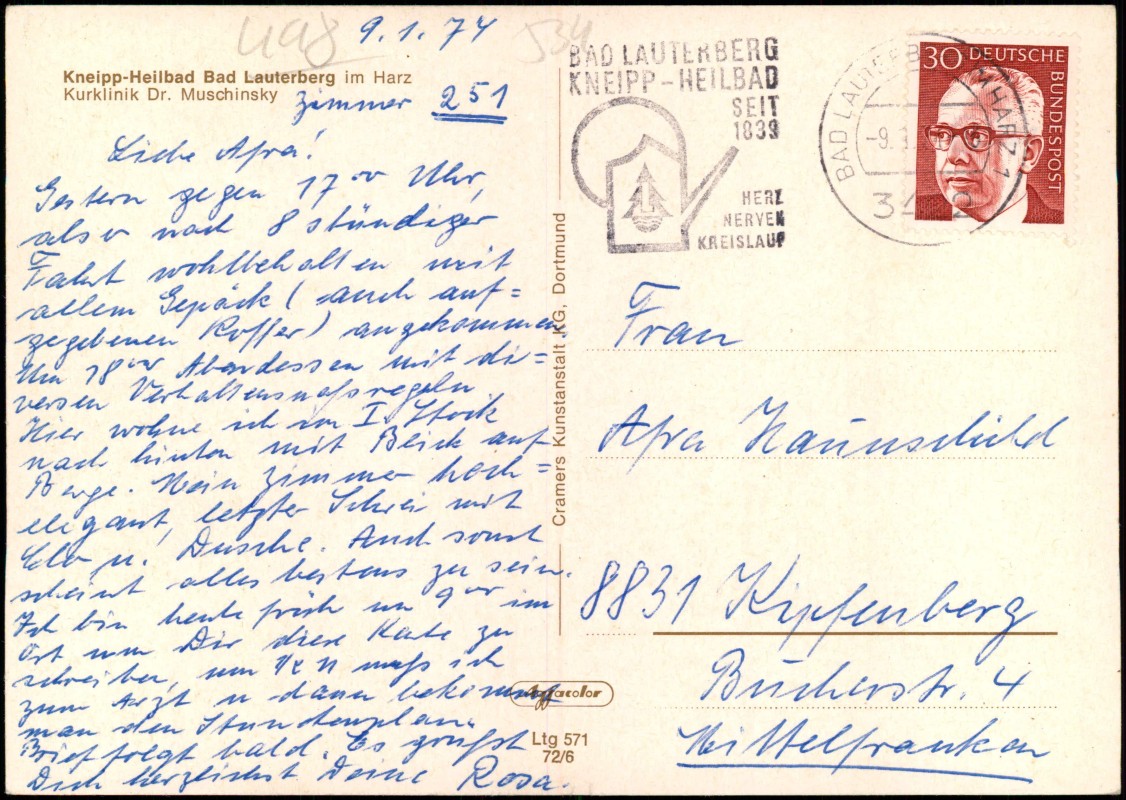 498
534
9.1.74
Kneipp-Heilbad Bad Lauterberg im Harz
Kurklinik Dr. Muschinsky
Zimmer 251
Liebe Afra!
Gestern gegen 17⁰⁰ Uhr,
also nach 8 stündiger
Fahrt wohlbehalten mit
allem Gepäck (auch auf=
gegebenen Koffer) angekommen.
Um 18⁰⁰ Abendessen mit di=
versen Verhaltensmaßregeln.
Hier wohne ich im I. Stock
nach hinten mit Blick auf
Berge. Mein Zimmer hoch=
elegant, letzter Schrei mit
Clo u. Dusche. Auch sonst
scheint alles bestens zu sein.
Ich bin heute früh um 9⁰⁰ im
Ort um Dir diese Karte zu
schreiben, um 1/2 11 muß ich
zum Arzt u dann bekommt
man den Stundenplan.
Brief folgt bald. Es grüßt
Dich herzlichst Deine Rosa.
Cramers Kunstanstalt KG, Dortmund
Agfacolor
Ltg 571
72/6
BAD LAUTERBERG
KNEIPP-HEILBAD
SEIT
1839
HERZ
NERVEN
KREISLAUF
BAD LAUTERB HARZ 1
-9.1.
34 2
30 DEUTSCHE
BUNDESPOST
Frau
Afra Haunschild
8831 Kipfenberg
Bucherstr. 4
Mittelfranken